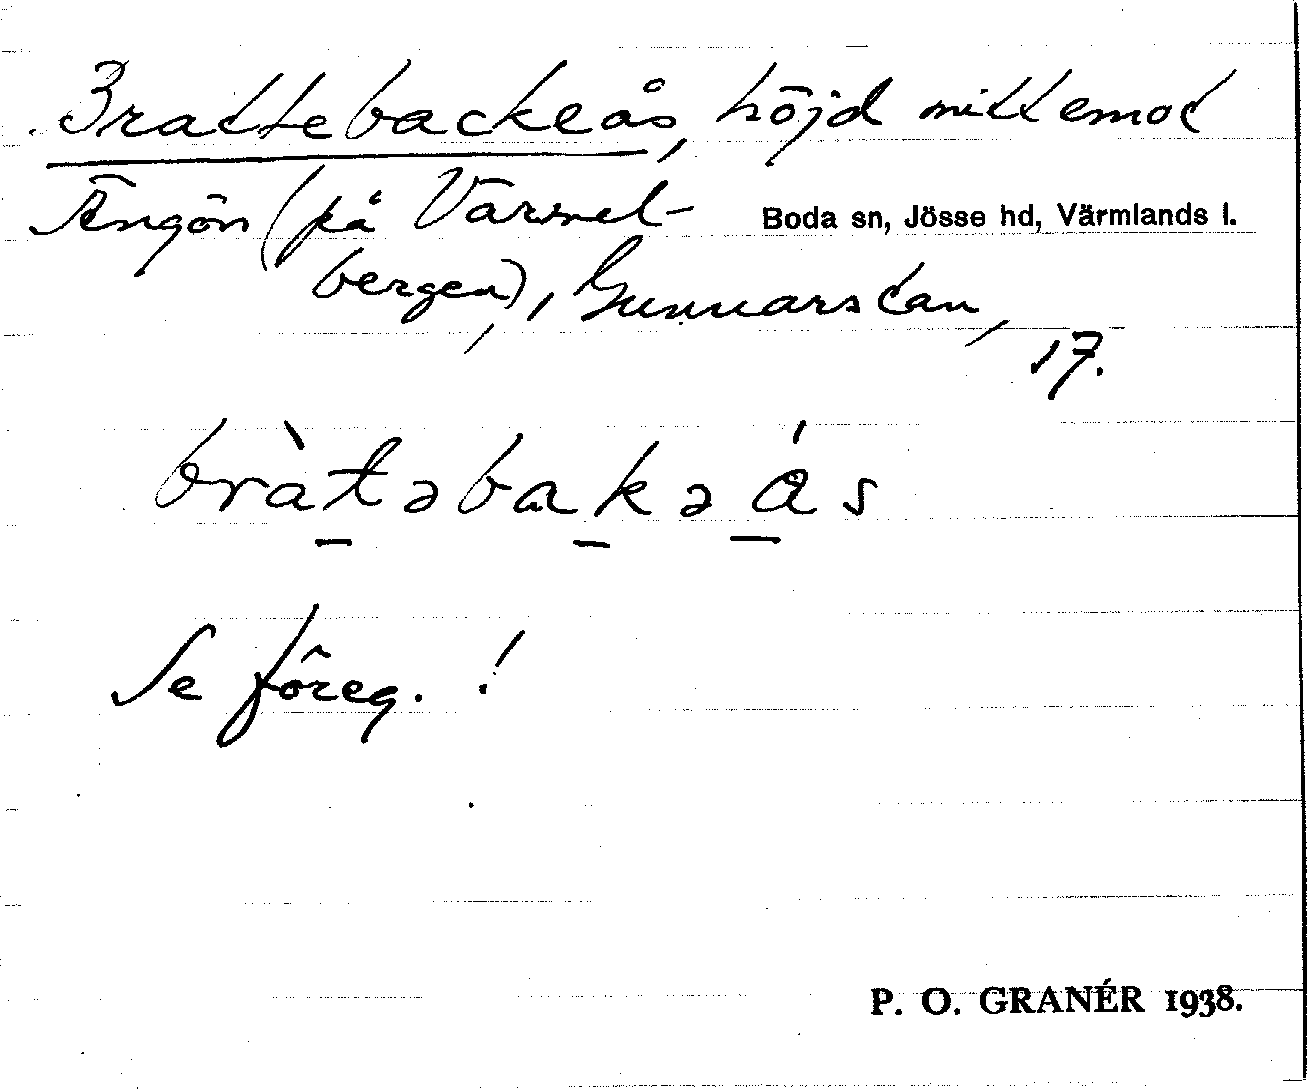 Brattebackeås, höjd mittemot
Ängön (på Värmel-
Boda sn, Jösse hd, Värmlands l.
bergen), Gunnarstan,
17.
bràt̠əbak̠ə á̠s
Se föreg. !
P. O. GRANÉR 1938.